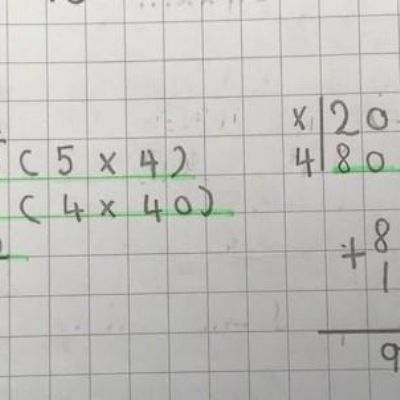 ( 5 x 4 )
( 4 x 40 )
x | 20
4 | 80
8
+ 1
9